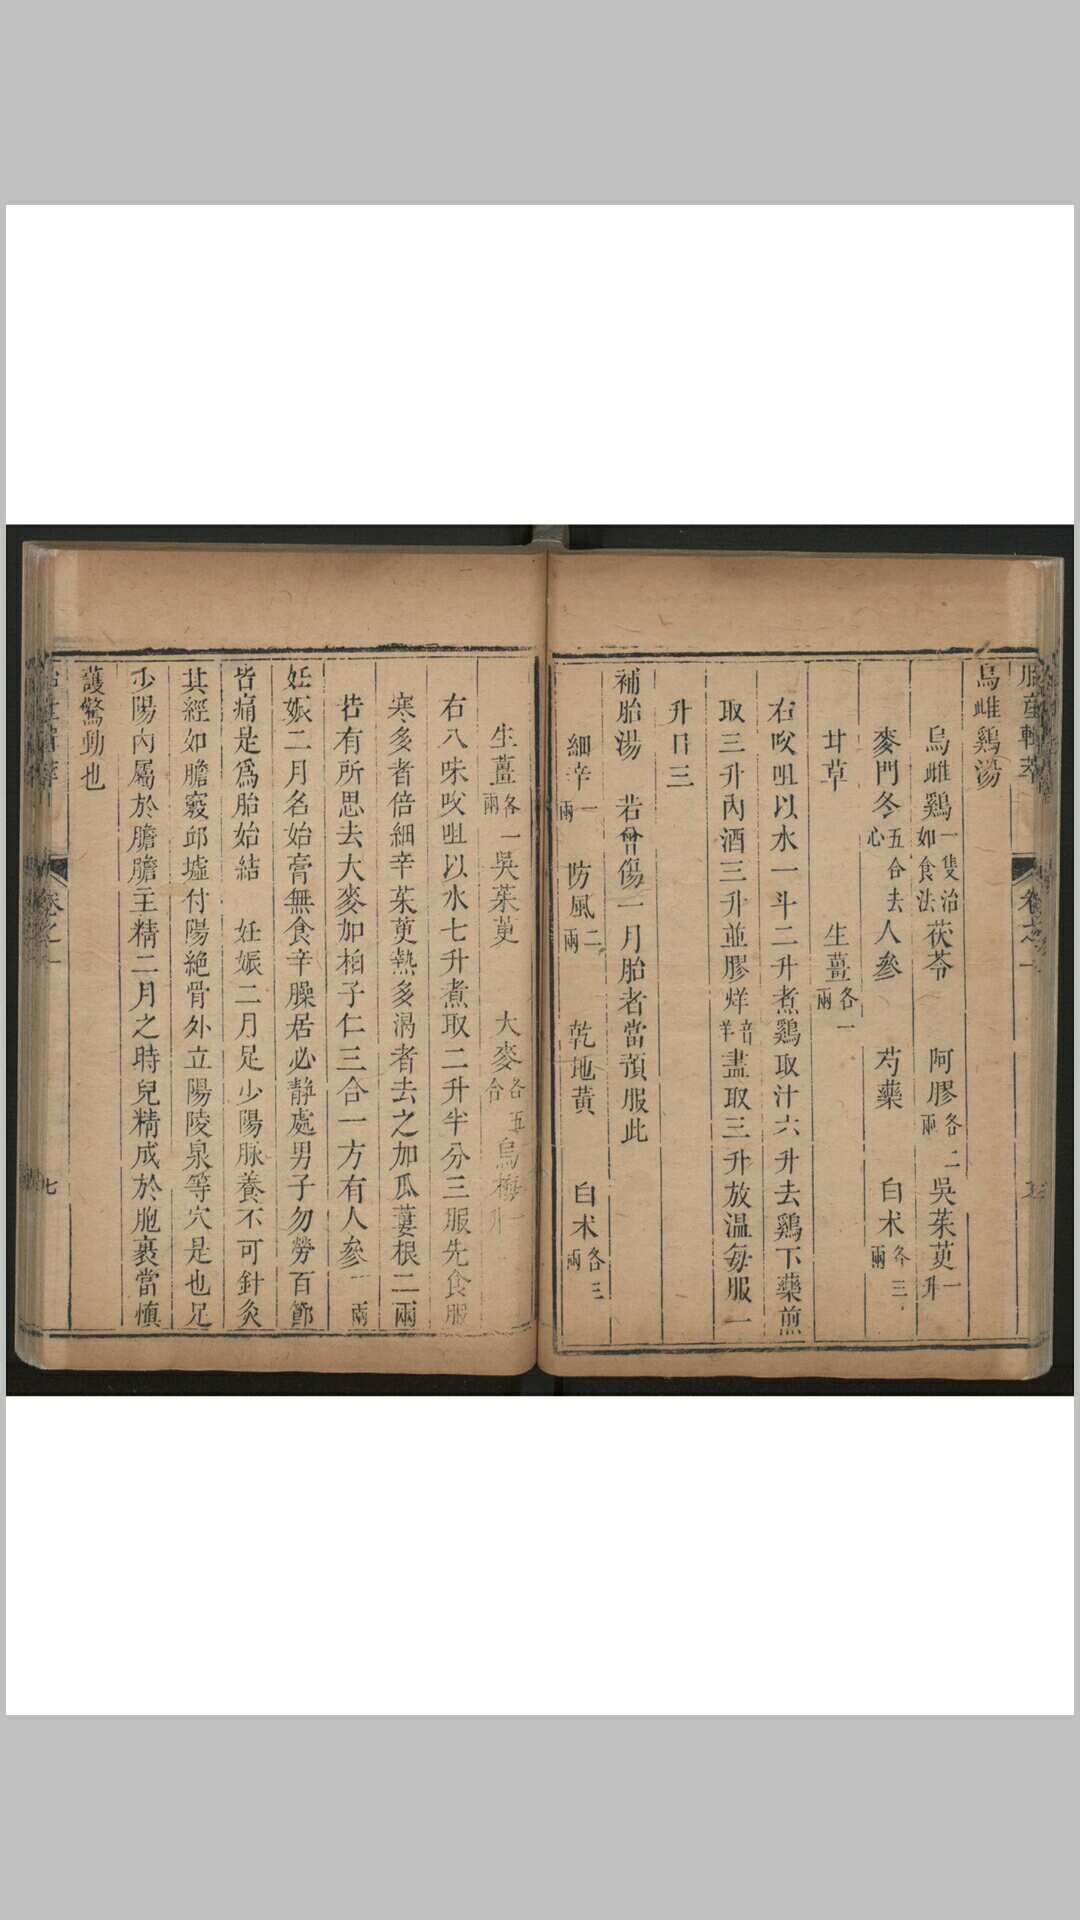 胎産輯萃 卷之一
烏雌鷄湯
烏雌鷄一隻治如食法 茯苓 阿膠各二兩 吳茱萸一升
麥門冬五合去心 人參 芍藥 白术各三兩
甘草 生薑各一兩
右㕮咀以水一斗二升煮鷄取汁六升去鷄下藥煎
取三升內酒三升並膠烊音羊盡取三升放溫每服一
升日三
補胎湯 若曾傷一月胎者當預服此
細辛一兩 防風二兩 乾地黃 白术各三兩
生薑各一兩 吳茱萸 大麥各五合 烏梅一升
右八味㕮咀以水七升煮取二升半分三服先食服
寒多者倍細辛茱萸熱多渴者去之加瓜蔞根二兩
若有所思去大麥加柏子仁三合一方有人參一兩
妊娠二月名始膏無食辛臊居必靜處男子勿勞百節
皆痛是爲胎始結 妊娠二月足少陽脉養不可針灸
其經如膽竅邱墟付陽絶骨外立陽陵泉等穴是也足
少陽內屬於膽膽主精二月之時兒精成於胞裹當慎
護驚動也
卷之一 七